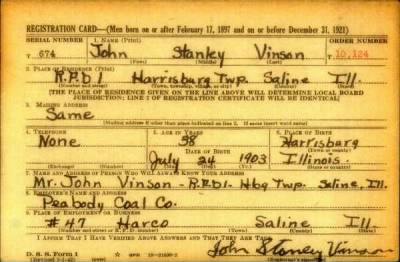 REGISTRATION CARD—(Men born on or after February 17, 1897 and on or before December 31, 1921)
SERIAL NUMBER 1. NAME (Print) ORDER NUMBER
T 674 John Stanley Vinson 10,124
(First) (Middle) (Last)
2. PLACE OF RESIDENCE (Print)
R.F.D1 Harrisburg Twp. Saline Ill.
(Number and street) (Town, township, village, or city) (County) (State)
[THE PLACE OF RESIDENCE GIVEN ON THE LINE ABOVE WILL DETERMINE LOCAL BOARD
JURISDICTION; LINE 2 OF REGISTRATION CERTIFICATE WILL BE IDENTICAL]
3. MAILING ADDRESS
Same
(Mailing address if other than place indicated on line 2. If same insert word same)
4. TELEPHONE 5. AGE IN YEARS 6. PLACE OF BIRTH
None 38 Harrisburg
DATE OF BIRTH
July 24 1903 Illinois.
(Exchange) (Number) (Mo.) (Day) (Yr.) (State or country)
7. NAME AND ADDRESS OF PERSON WHO WILL ALWAYS KNOW YOUR ADDRESS
Mr. John Vinson - R.F.D1- Hbg Twp. Saline, Ill.
8. EMPLOYER'S NAME AND ADDRESS
Peabody Coal Co.
9. PLACE OF EMPLOYMENT OR BUSINESS
#47 Harco Saline Ill.
(Number and street or R. F. D. number) (Town) (County) (State)
I AFFIRM THAT I HAVE VERIFIED ABOVE ANSWERS AND THAT THEY ARE TRUE.
D. S. S. Form 1 John Stanley Vinson